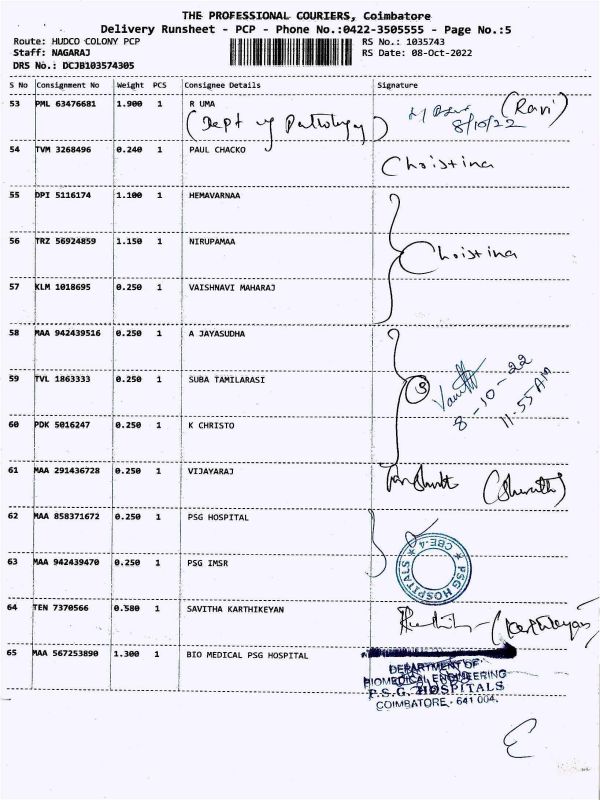 THE PROFESSIONAL COURIERS, Coimbatore
Delivery Runsheet - PCP - Phone No.:0422-3505555 - Page No.:5
Route: HUDCO COLONY PCP
RS No.: 1035743
Staff: NAGARAJ
RS Date: 08-Oct-2022
DRS No.: DCJB103574305
S No Consignment No Weight PCS Consignee Details Signature
53 PML 63476681 1.900 1 R UMA (Ravi)
(Dept of Pathology) 8/10/22
54 TVM 3268496 0.240 1 PAUL CHACKO
Christina
55 DPI 5116174 1.100 1 HEMAVARNAA
56 TRZ 56924859 1.150 1 NIRUPAMAA
Christina
57 KLM 1018695 0.250 1 VAISHNAVI MAHARAJ
58 MAA 942439516 0.250 1 A JAYASUDHA
59 TVL 1863333 0.250 1 SUBA TAMILARASI
3 8-10-22
11.55 AM
60 PDK 5016247 0.250 1 K CHRISTO
61 MAA 291436728 0.250 1 VIJAYARAJ
62 MAA 858371672 0.250 1 PSG HOSPITAL
63 MAA 942439470 0.250 1 PSG IMSR
PSG HOSPITALS CBE-4
64 TEN 7370566 0.580 1 SAVITHA KARTHIKEYAN
(Karthikeyan)
65 MAA 567253890 1.300 1 BIO MEDICAL PSG HOSPITAL
DEPARTMENT OF
BIOMEDICAL ENGINEERING
P.S.G. HOSPITALS
COIMBATORE - 641 004.